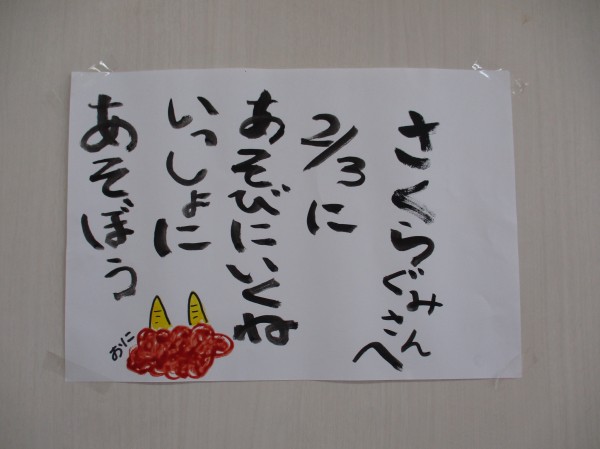 さくらぐみさんへ
2/3に
あそびにいくね
いっしょに
あそぼう
おに